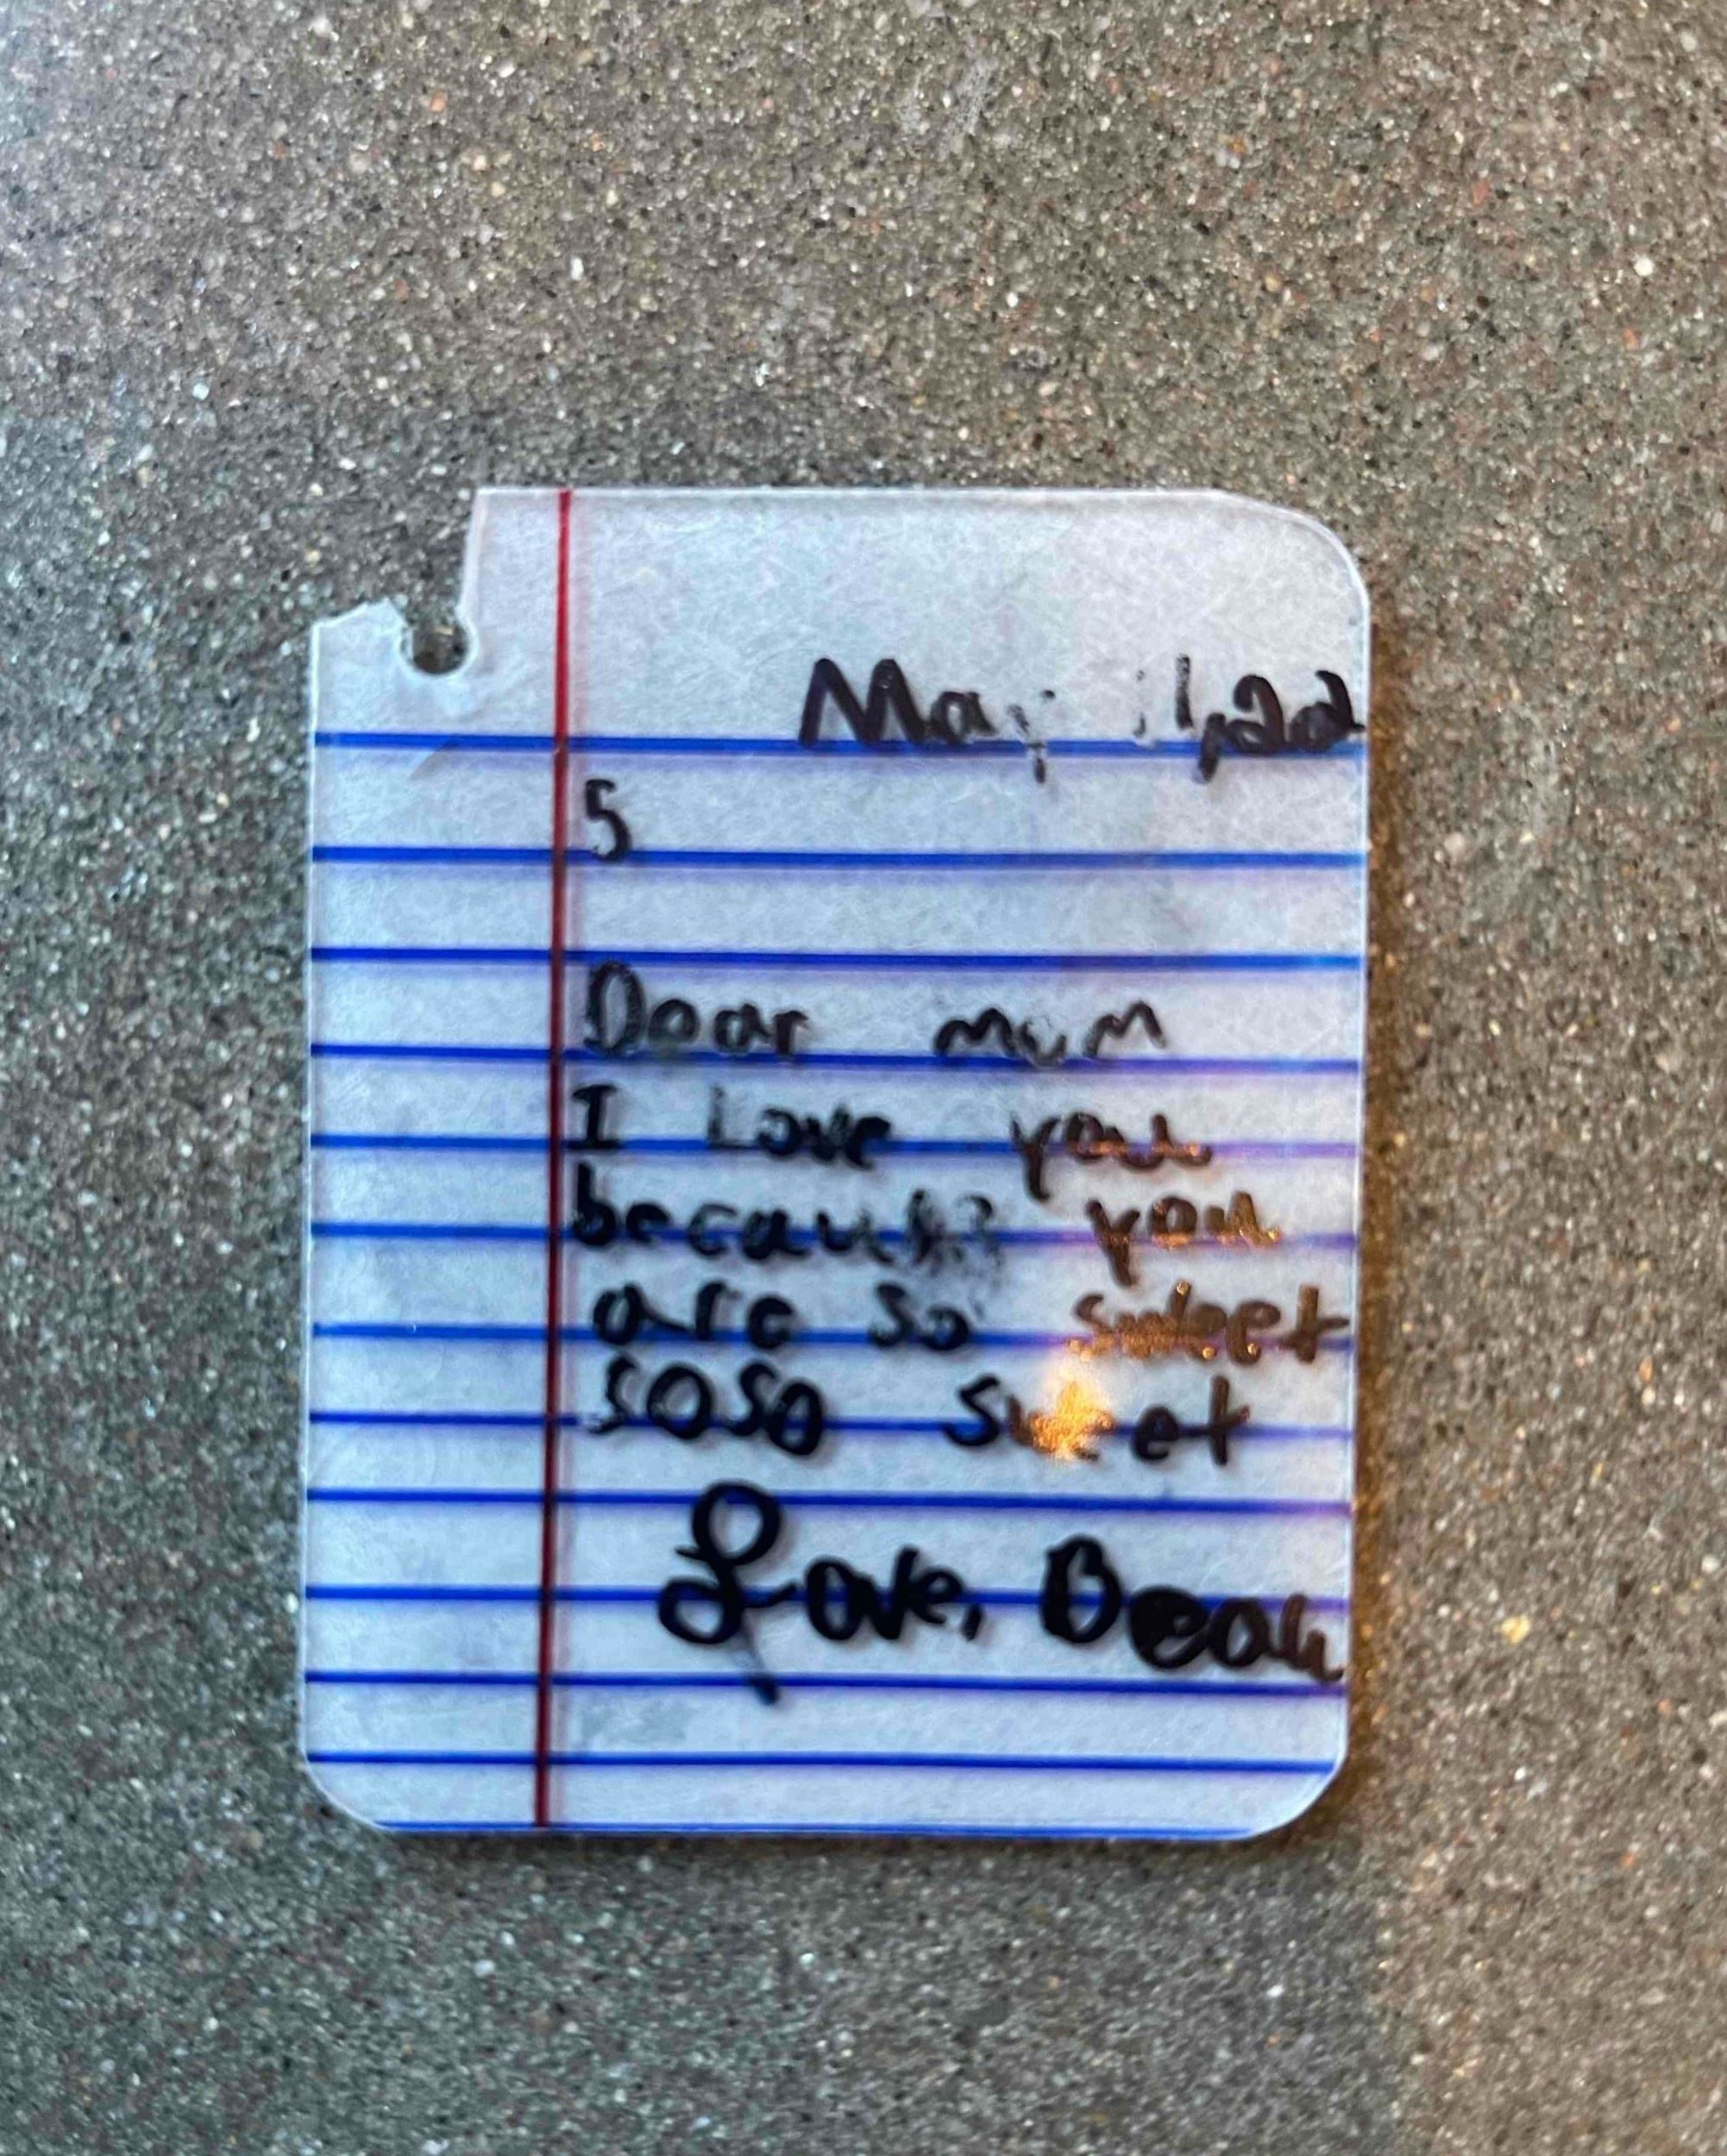 May 11, 202
5
Dear mum
I Love you
because you
are so sweet
soso sweet
Love, Beau